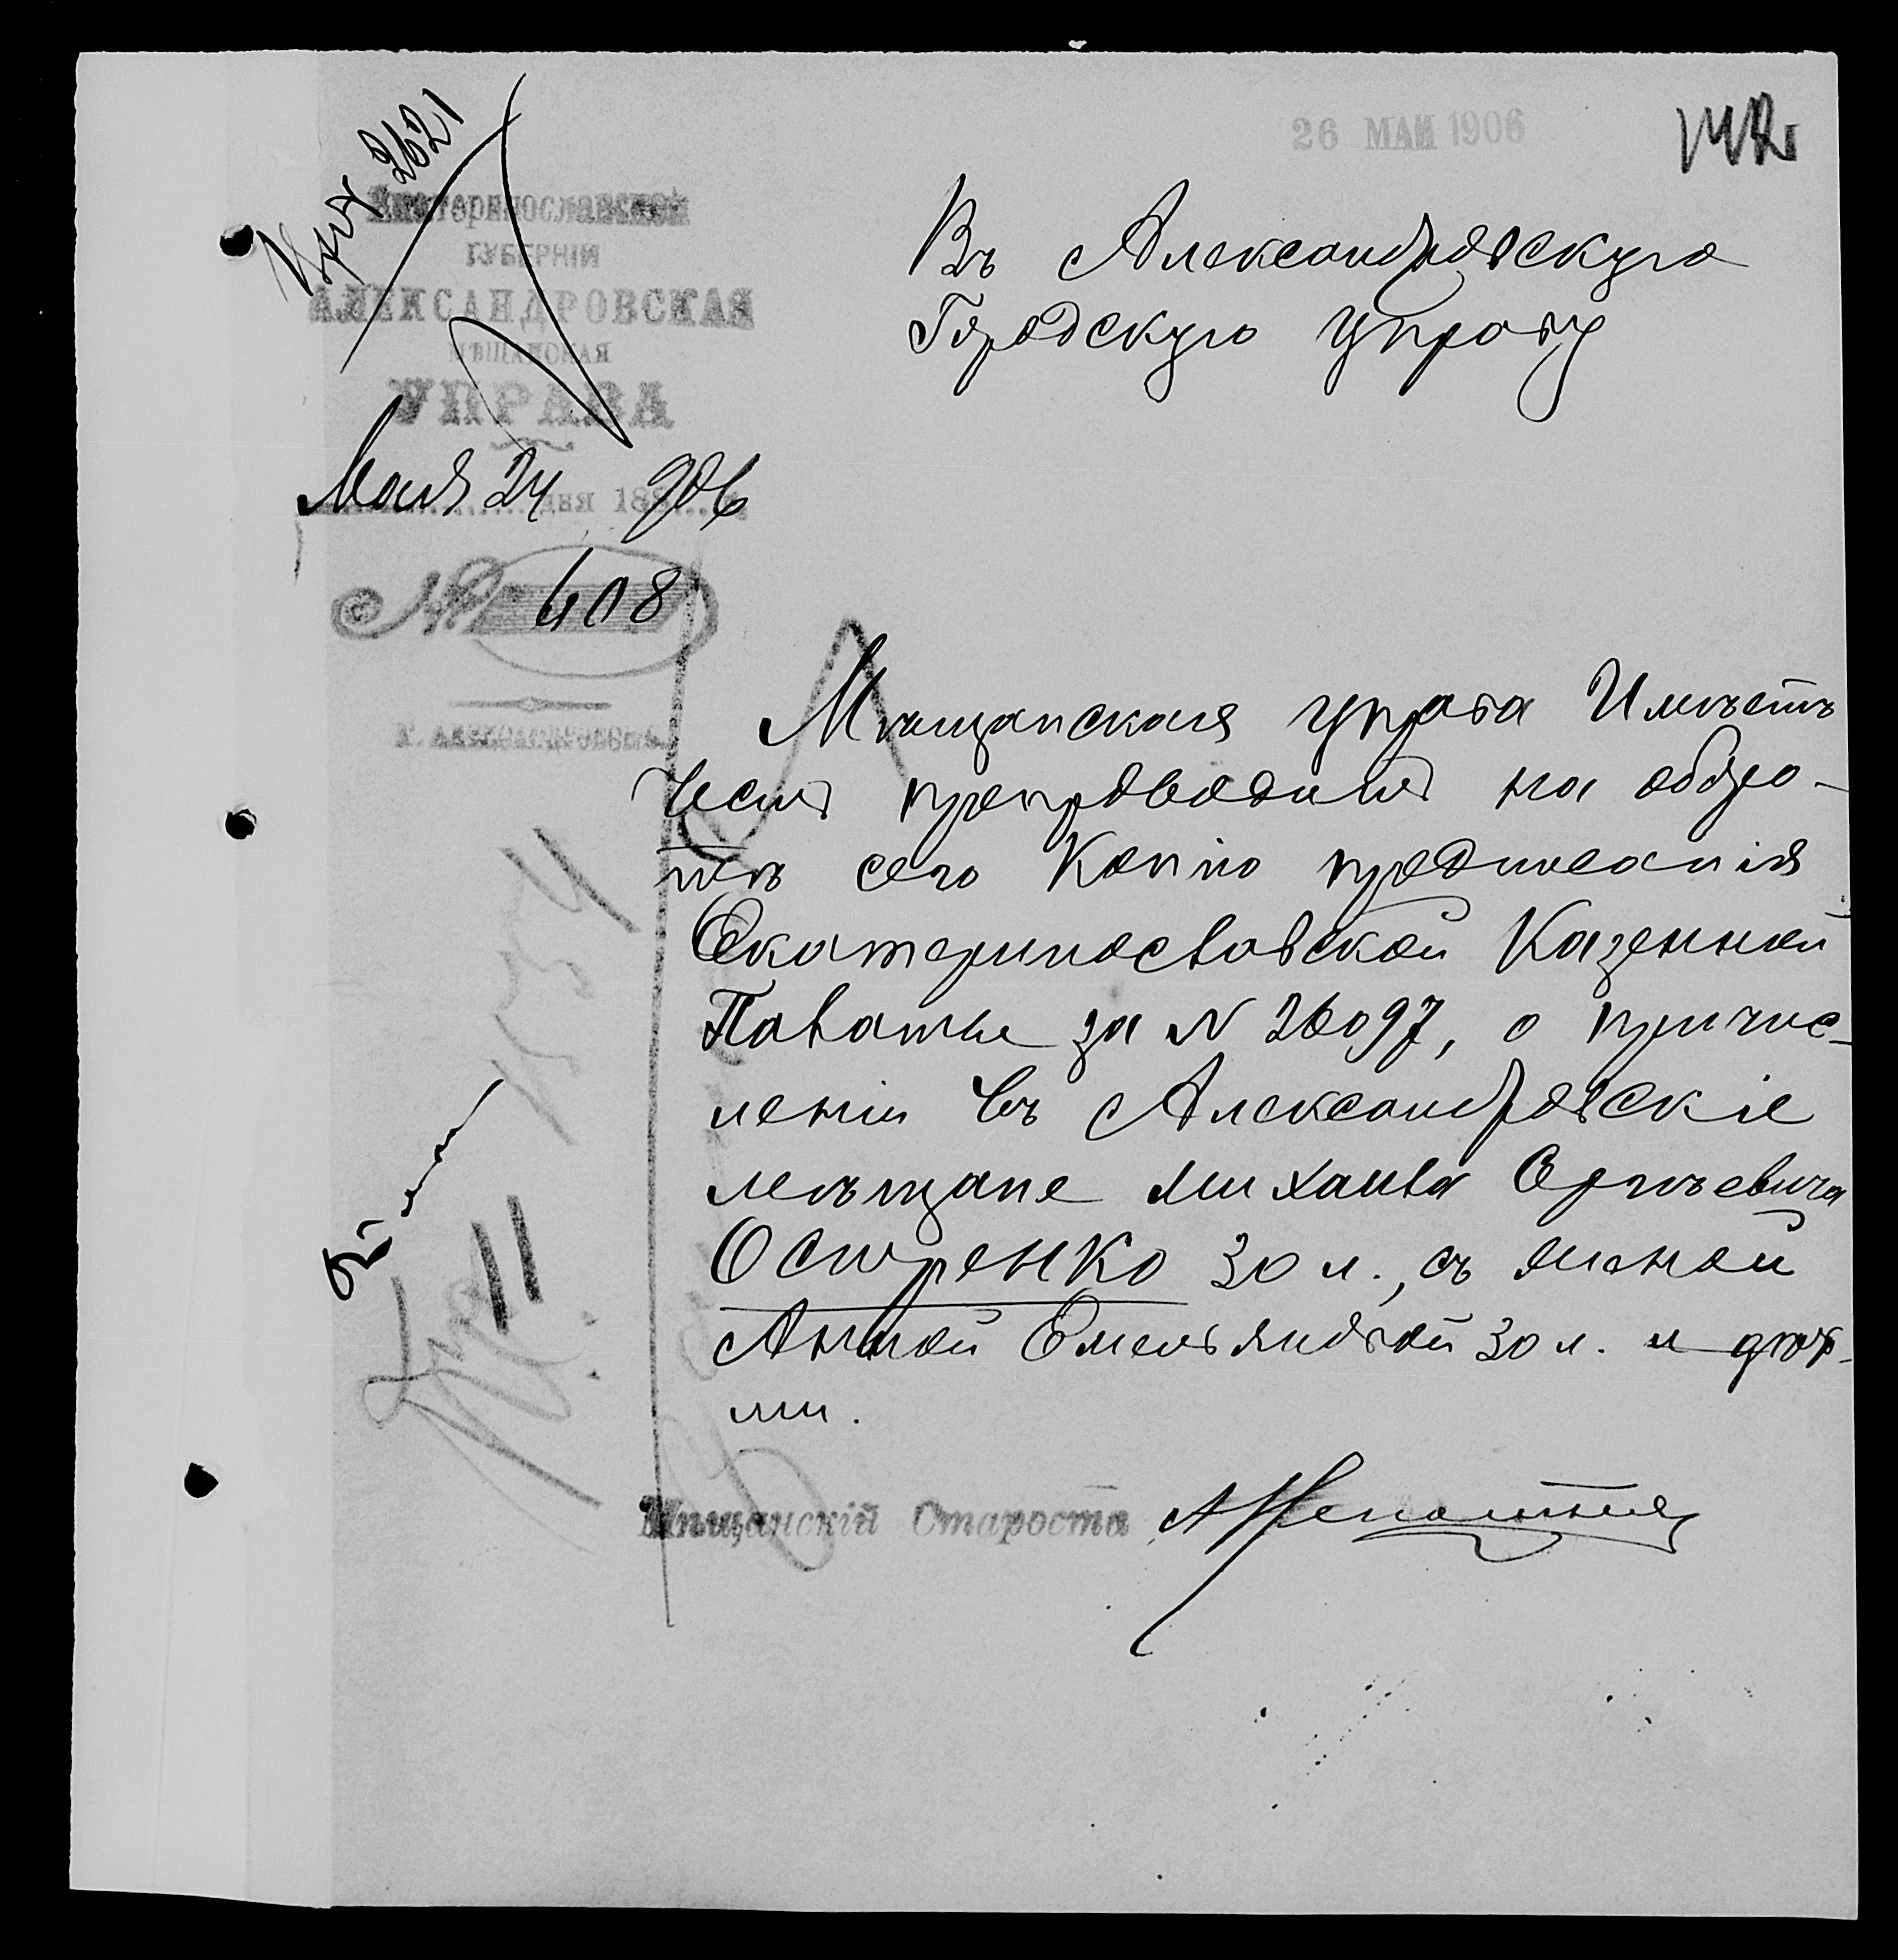 26 МАЯ 1906
Вх 2621
Екатеринославской
ГУБЕРНІИ
АЛЕКСАНДРОВСКАЯ
МѢЩАНСКАЯ
УПРАВА
Мая 24 906
дня 188
№ 408
Г. Александровскъ
Въ Александровскую
Городскую Управу
Мѣщанская Управа Имѣетъ
честь препроводить на оборо-
тѣ сего Копію предписанія
Екатеринославской Казенной
Палаты за N 26097, о причис-
леніи въ Александровскіе
мѣщане Михаила Сергѣевича
Остренко 30 л., съ женой
Анной Емельяновой 30 л. и дѣть-
ми.
Мѣщанскій Староста